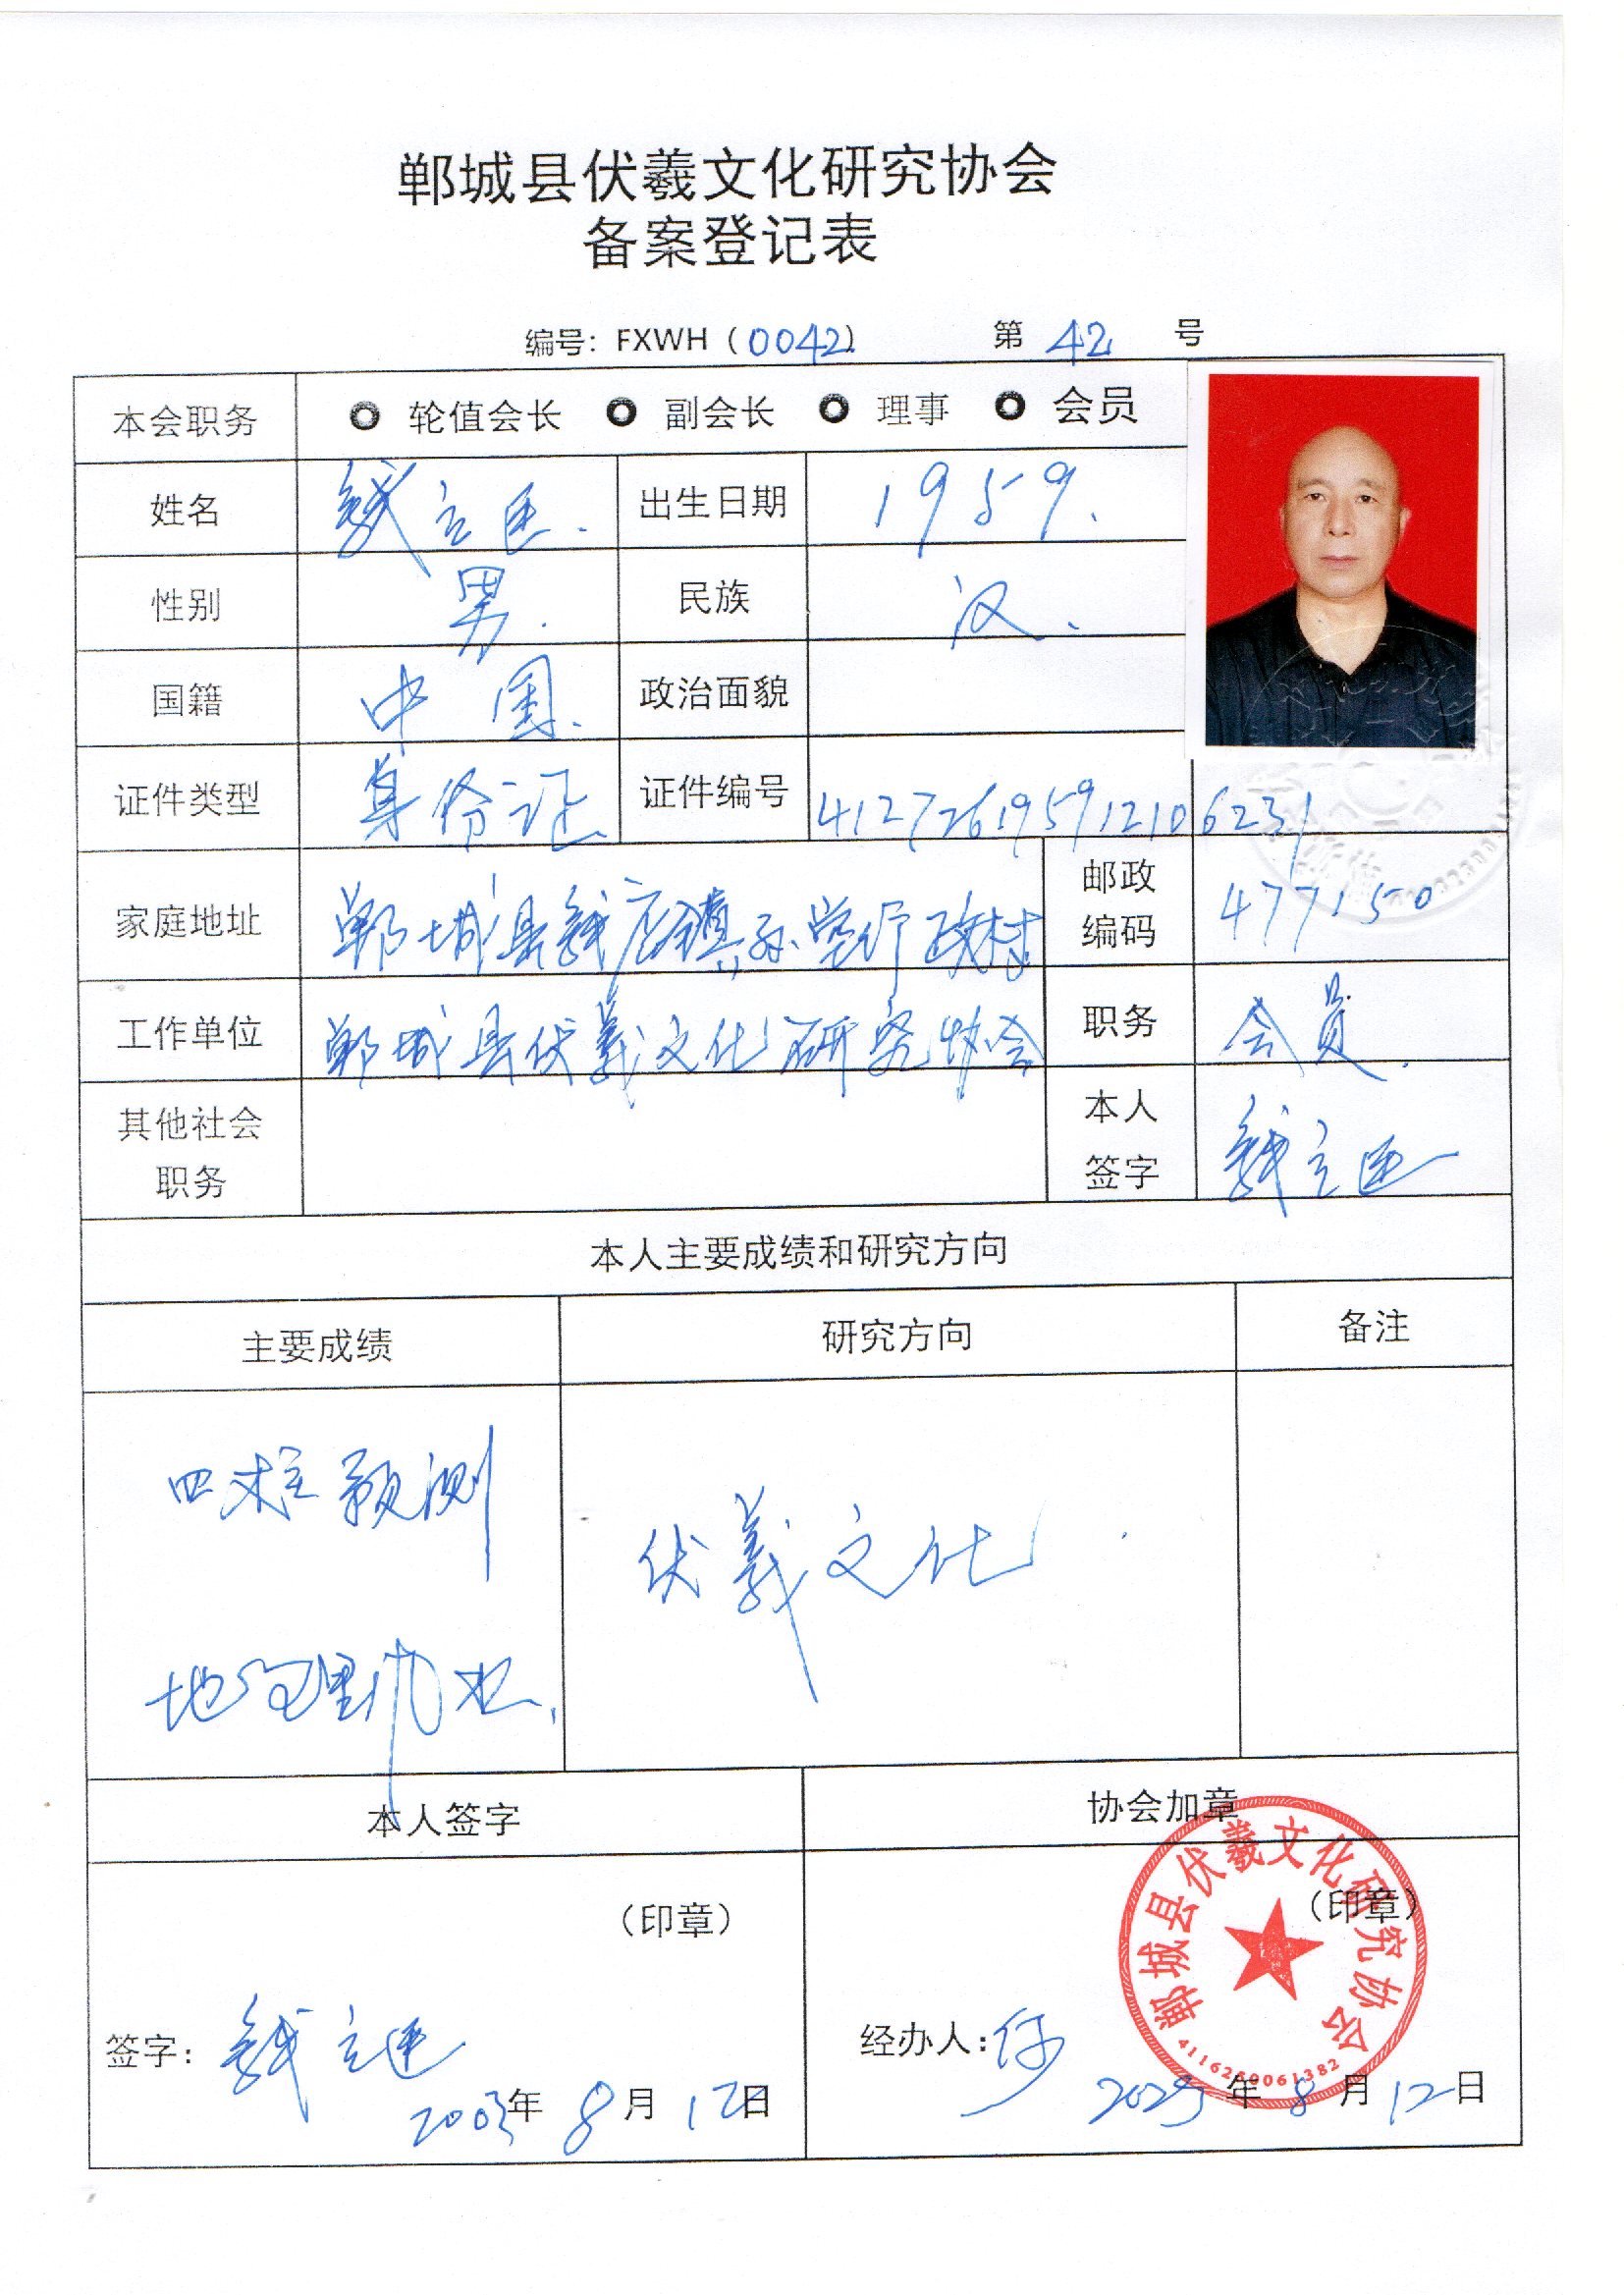 郸城县伏羲文化研究协会
备案登记表
编号：FXWH（0042） 第 42 号
本会职务 轮值会长 副会长 理事 会员
姓名 钱立 出生日期 1959.
性别 男. 民族 汉.
国籍 中国. 政治面貌
证件类型 身份证 证件编号 412726195912106231
家庭地址 郸城县钱店镇孙堂行政村 邮政编码 477150
工作单位 郸城县伏羲文化研究协会 职务 会员.
其他社会职务 本人签字 钱立
本人主要成绩和研究方向
主要成绩 研究方向 备注
四柱预测
伏羲文化
地理
本人签字 协会加章
（印章） （印章）
郸城县伏羲文化研究协会
4116250061382
签字： 钱立 经办人：
2003年 8月 12日 2023年 8月 12日